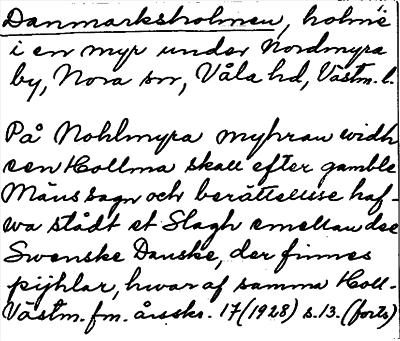 Danmarksholmen, holme
i en myr under Nordmyra
by, Nora sn, Våla hd, Västm. l.
På Nohlmyra myhran widh
een Hollma skall efter gamble
Mäns sagn och berättellse haf-
wa stådt et Slagh emellan dee
Swenske Danske, der finnes
pijhlar, hwar af samma Holl-
Västm. fm. årsskr. 17 (1928) s. 13. (forts)